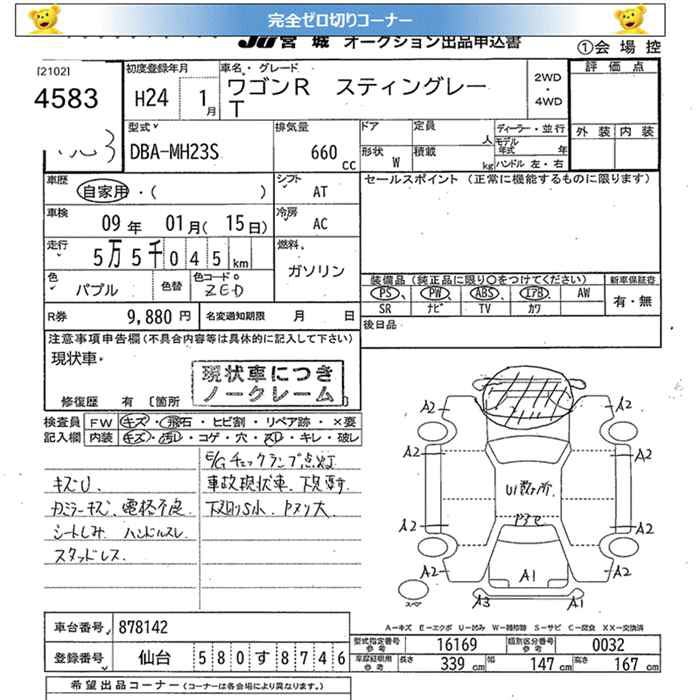 完全ゼロ切りコーナー
JU 宮城 オークション出品申込書
①会場控
[2102]
4583
初度登録年月
H24 1月
車名・グレード
ワゴンR スティングレー
T
2WD
・
4WD
評価点
外装 内装
型式
DBA-MH23S
排気量
660 cc
ドア
定員 人
ディーラー・並行
モデル年式 年
形状 W
積載 kg
ハンドル 左・右
車歴
自家用・( )
シフト
AT
セールスポイント (正常に機能するものに限ります)
車検
09年 01月(15日)
冷房
AC
走行
5万5千045km
燃料
ガソリン
色
パプル
色替
色コード
ZED
装備品(純正品に限り○をつけてください)
新車保証書
PS PW ABS エアB AW
有・無
SR ナビ TV カワ
R券
9,880円
名変通知期限 月 日
後日品
注意事項申告欄(不具合内容等は具体的に記入して下さい)
現状車
現状車につき
ノークレーム
修復歴 有 〔箇所
検査員
記入欄
FW キズ・飛石・ヒビ割・リペア跡・×要
内装 キズ・汚レ・コゲ・穴・スレ・キレ・破レ
E/Gチェックランプ点灯
キズU.
事故現状車、下見要す
カミラーキズ、電格不良
下回りS小、
シートしみ ハンドルスレ
スタッドレス
A2 A2
A2 A2
U1数ヶ所
A2 A2
A2 A1 A2
A3 A1
スペア
A-キズ E-エクボ U-凹み W-補修跡 S-サビ C-腐食 XX-交換済
車台番号
878142
型式指定番号
参考
16169
類別区分番号
参考
0032
登録番号
仙台 580す8746
参考
長さ 339cm 幅 147cm 高さ 167cm
希望出品コーナー(コーナーは各会場により異なります。)